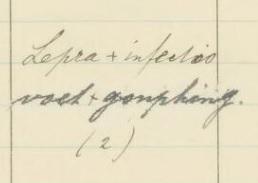 Lepra + infectio
voet +
(2)